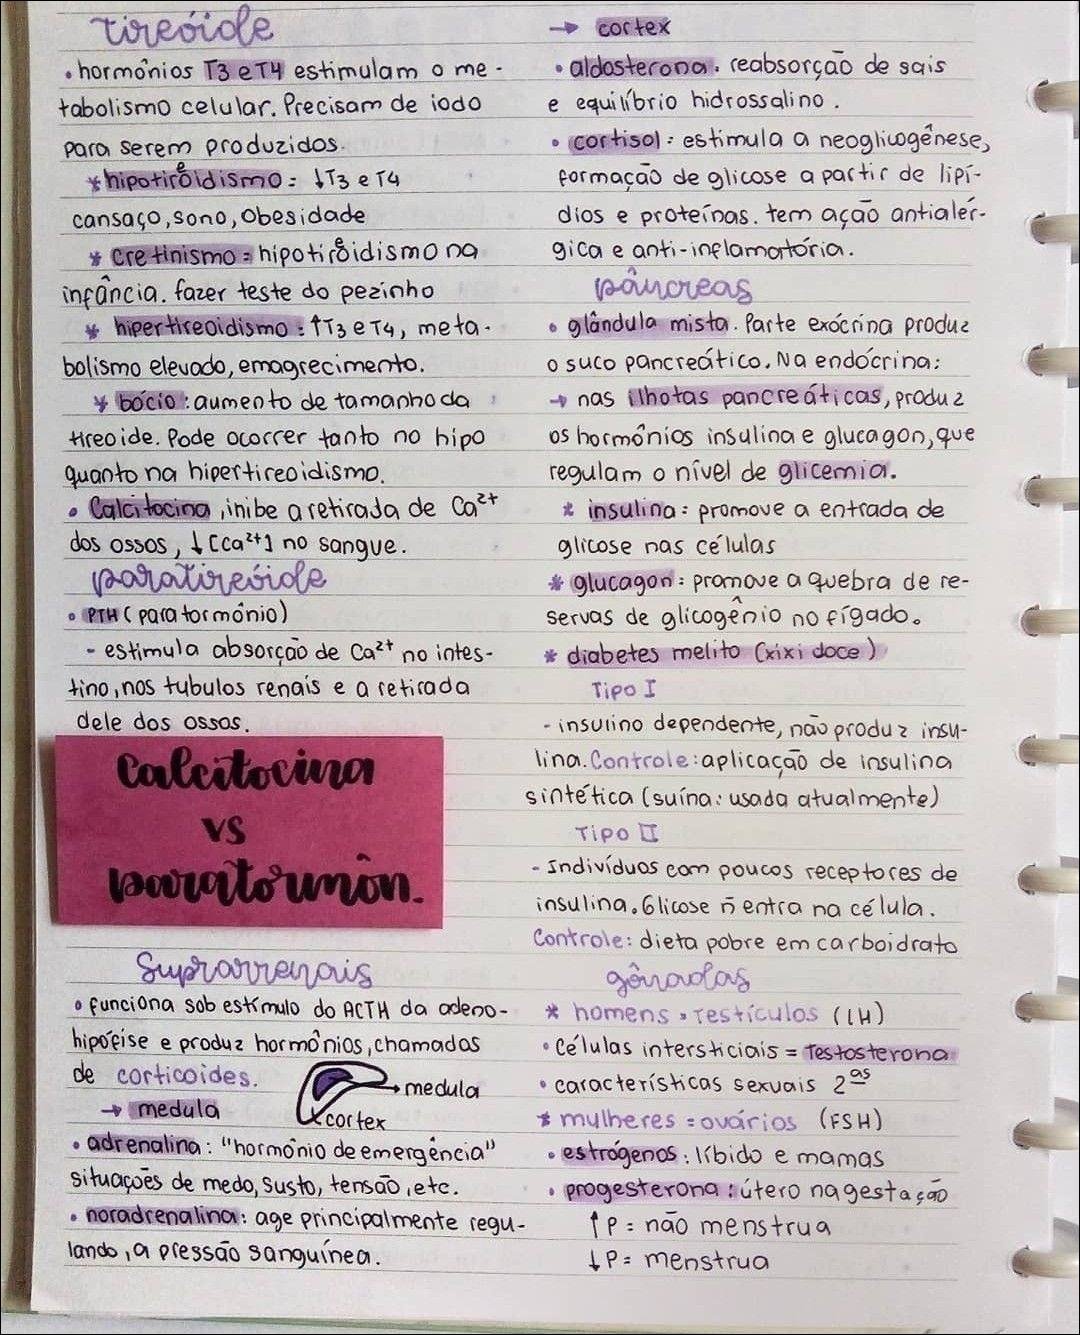 tireóide
• hormônios T3 e T4 estimulam o me-
tabolismo celular. Precisam de iodo
para serem produzidos.
* hipotireoidismo = ↓T3 e T4
cansaço, sono, obesidade
* cretinismo = hipotireoidismo na
infância. fazer teste do pezinho
* hipertireoidismo: ↑T3 e T4, meta-
bolismo elevado, emagrecimento.
* bócio: aumento de tamanho da
tireoide. Pode ocorrer tanto no hipo
quanto na hipertireoidismo.
• Calcitocina, inibe a retirada de Ca²⁺
dos ossos, ↓[Ca²⁺] no sangue.
paratireóide
• PTH (paratormônio)
- estimula absorção de Ca²⁺ no intes-
tino, nos tubulos renais e a retirada
dele dos ossos.
Calcitocina
vs
paratormôn.
Suprarrenais
• funciona sob estímulo do ACTH da adeno-
hipófise e produz hormônios, chamados
de corticoides.
→ medula
medula
cortex
• adrenalina: "hormônio de emergência"
situações de medo, susto, tensão, etc.
• noradrenalina: age principalmente regu-
lando, a pressão sanguínea.
→ cortex
• aldosterona. reabsorção de sais
e equilíbrio hidrossalino.
• cortisol: estimula a neoglicogênese,
formação de glicose a partir de lipí-
dios e proteínas. tem ação antialér-
gica e anti-inflamatória.
pâncreas
• glândula mista. Parte exócrina produz
o suco pancreático. Na endócrina:
→ nas ilhotas pancreáticas, produz
os hormônios insulina e glucagon, que
regulam o nível de glicemia.
* insulina: promove a entrada de
glicose nas células
* glucagon: promove a quebra de re-
servas de glicogênio no fígado.
* diabetes melito (xixi doce)
Tipo I
- insulino dependente, não produz insu-
lina. Controle: aplicação de insulina
sintética (suína: usada atualmente)
Tipo II
- Indivíduos com poucos receptores de
insulina. Glicose ñ entra na célula.
Controle: dieta pobre em carboidrato
gônadas
* homens • testículos (LH)
• Células intersticiais = Testosterona
• características sexuais 2ªˢ
* mulheres = ovários (FSH)
• estrógenos: líbido e mamas
• progesterona: útero na gestação
↑P = não menstrua
↓P = menstrua